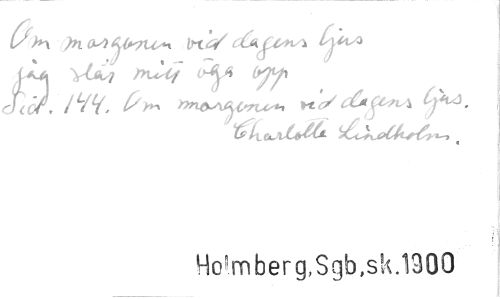 Om morgonen vid dagens ljus
jag slår mitt öga opp
Sid. 144. Om morgonen vid dagens ljus.
Charlotte Lindholm.
Holmberg,Sgb,sk.1900